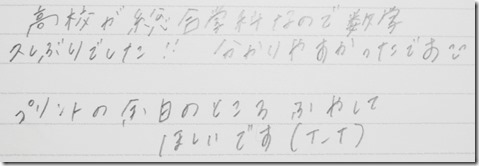 高校が総合学科なので数学
久しぶりでした!! 分かりやすかったです
プリントの余白のところふやして
ほしいです(T-T)